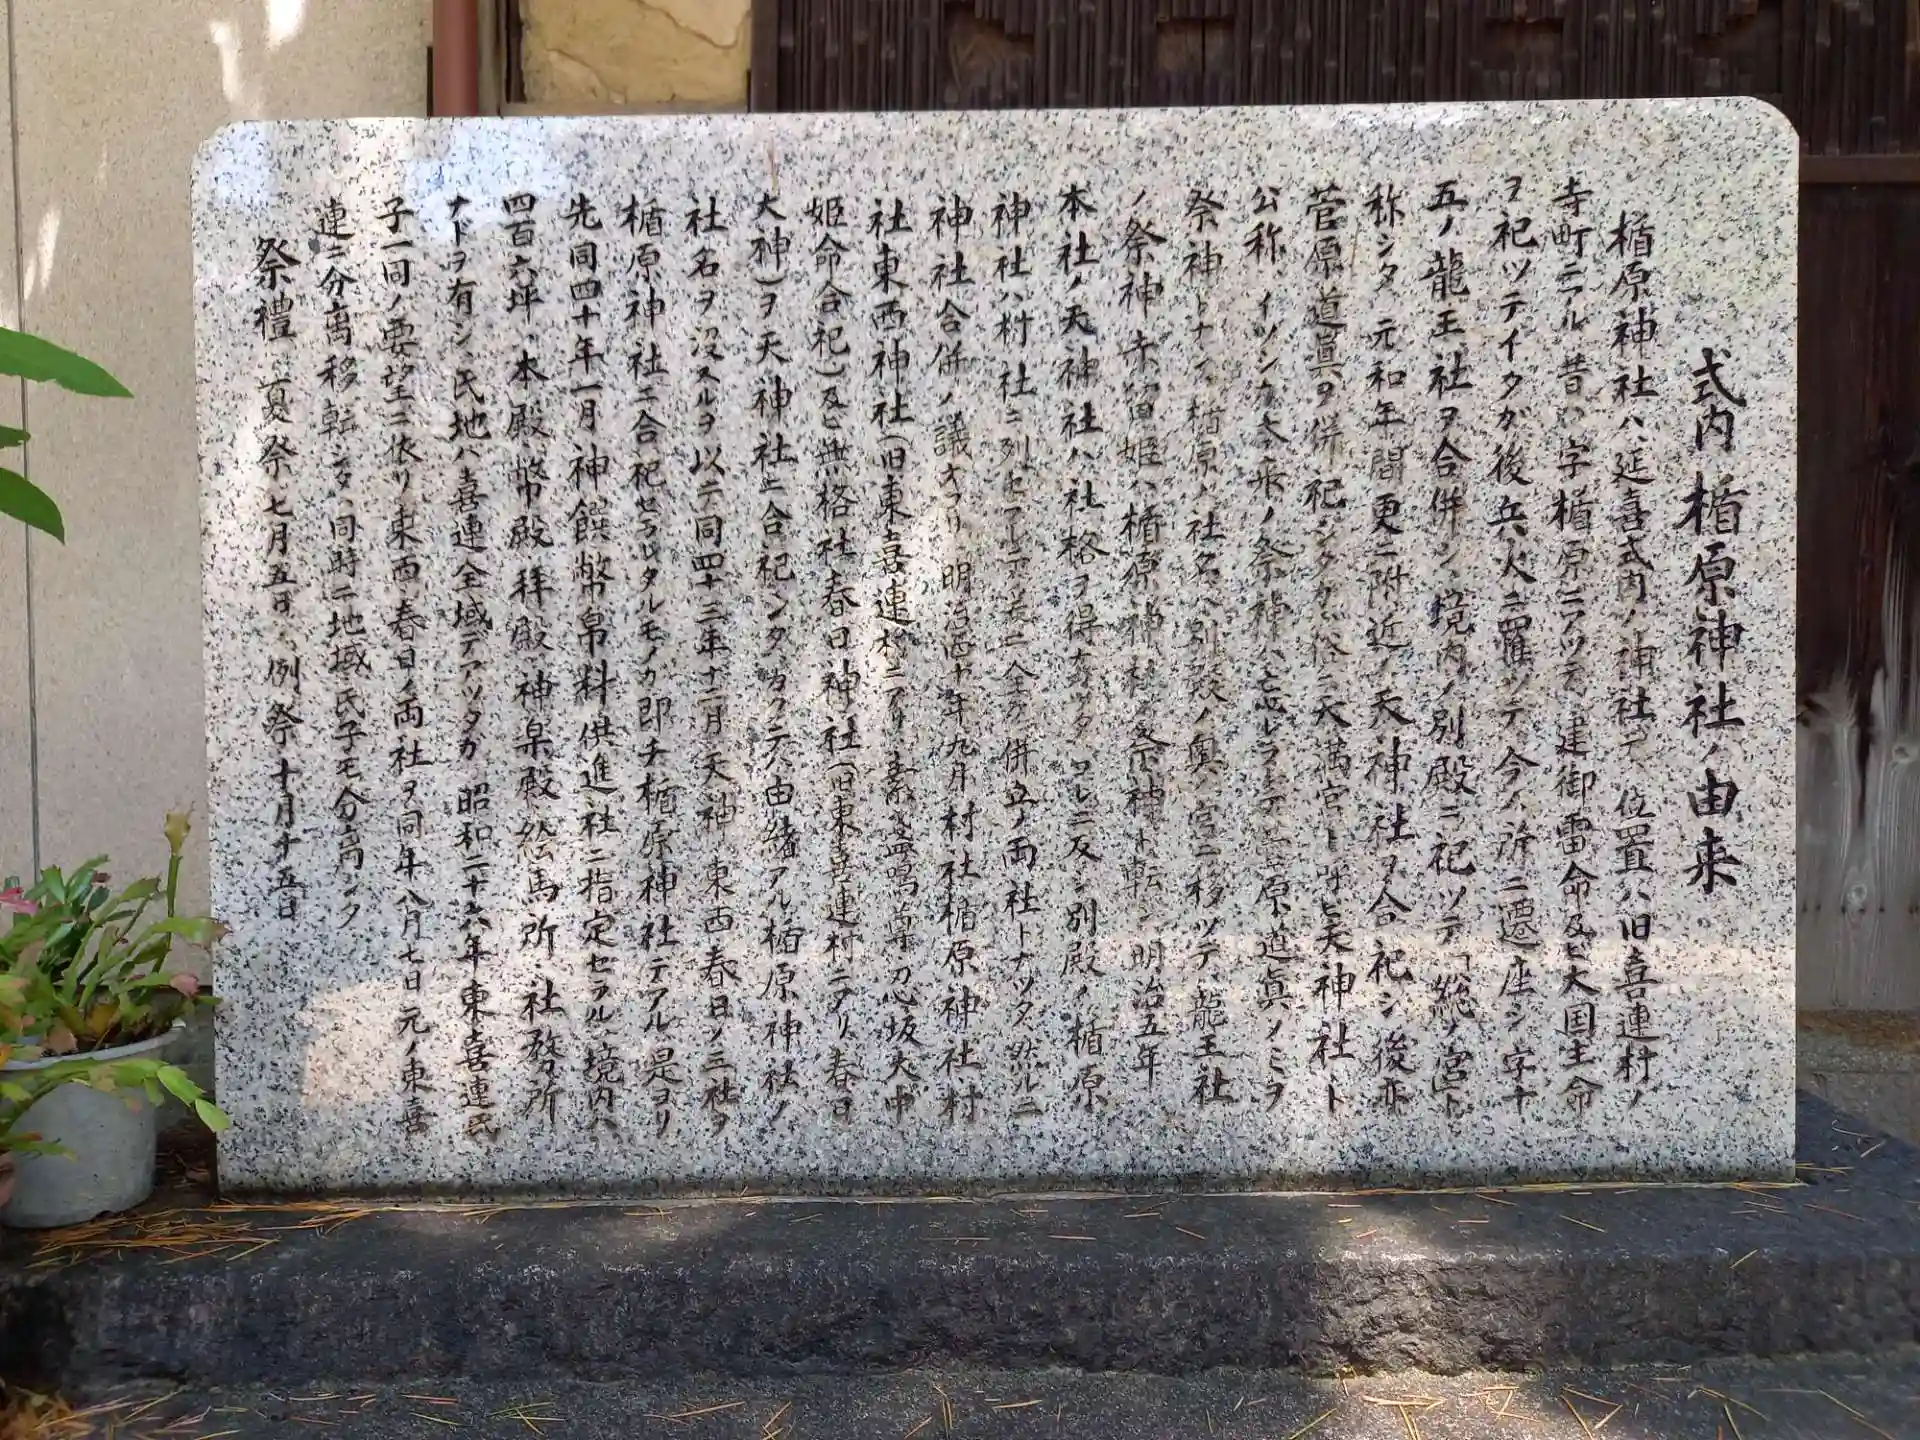 式内 楯原神社ノ由来
楯原神社ハ延喜式内ノ神社デ、位置ハ旧喜連村ノ
寺町ニアル昔ハ字楯原ニアツテ、建御雷命及ビ大国主命
ヲ祀ツテイタガ後兵火ニ罹ツテ今ノ所ニ遷座シ字十
五ノ龍王社ヲ合併シ、境内ノ別殿ニ祀ツテ「総ノ宮」ト
称シタ、元和年間更ニ附近ノ天神社ヲ合祀シ後亦
菅原道眞ヲ併祀シタガ俗ニ天満宮ト呼ビ天神社ト
公称、イツシカ本来ノ祭神ハ忘レラレテ菅原道眞ノミヲ
祭神トナシ、楯原ノ社名ハ別殿ノ奥ノ宮ニ移ツテ、龍王社
ノ祭神赤留姫ハ楯原神社ノ祭神ト転シ明治五年
本社ノ天神社ハ社格ヲ得ナカツタ、コレニ反シ別殿ノ楯原
神社ハ村社ニ列セラレテ茲ニ全ク併立ノ両社トナツタ、然ルニ
神社合併ノ議オコリ明治四十年九月村社楯原神社村
社東西神社(旧東喜連村ニアリ素盞嗚尊忍坂大中
姫命合祀)及ビ無格社春日神社(旧東喜連村ニアリ、春日
大神)ヲ天神社ニ合祀シタ、カクテハ由緒アル楯原神社ノ
社名ヲ没スルヲ以テ同四十三年十二月天神東西春日ノ三社ヲ
楯原神社ニ合祀セラレタルモノガ即チ楯原神社デアル是ヨリ
先同四十年一月神饌幣帛料供進社ニ指定セラル、境内ハ
四百六坪、本殿幣殿拝殿神楽殿絵馬所・社務所
ナドヲ有シ、氏地ハ喜連全域デアツタガ、昭和二十六年東喜連氏
子一同ノ要望ニ依リ東西春日ノ両社ヲ同年八月七日元ノ東喜
連ニ分离移転シタ、同時ニ地域氏子モ分离シタ
祭禮、夏祭七月五日、例祭十月十五日